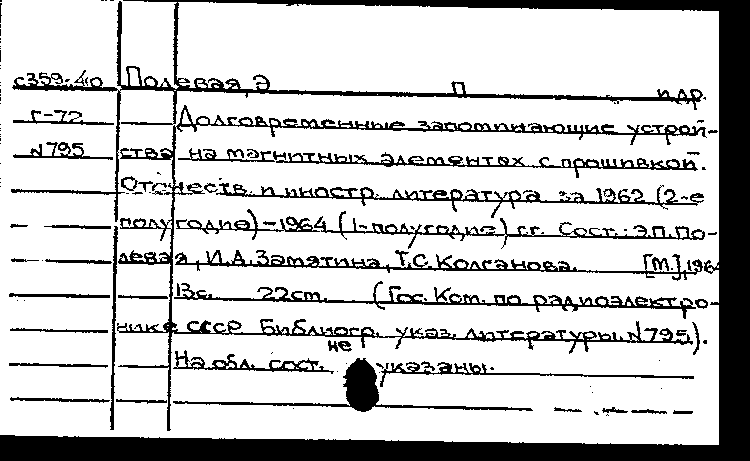 с359-40 Полевая, Э П и др.
г-72 Долговременные запоминающие устрой-
N795 ства на магнитных элементах с прошивкой.
Отечеств. и иностр. литература за 1962 (2-е
полугодие)-1964 (1-полугодие) гг. Сост.: Э.П.По-
левая, И.А.Замятина, Т.С.Колганова. [М.], 1964
13с. 22cm. (Гос. Ком. по радиоэлектро-
нике СССР Библиогр. указ. литературы. N795).
На обл. сост. не указаны.